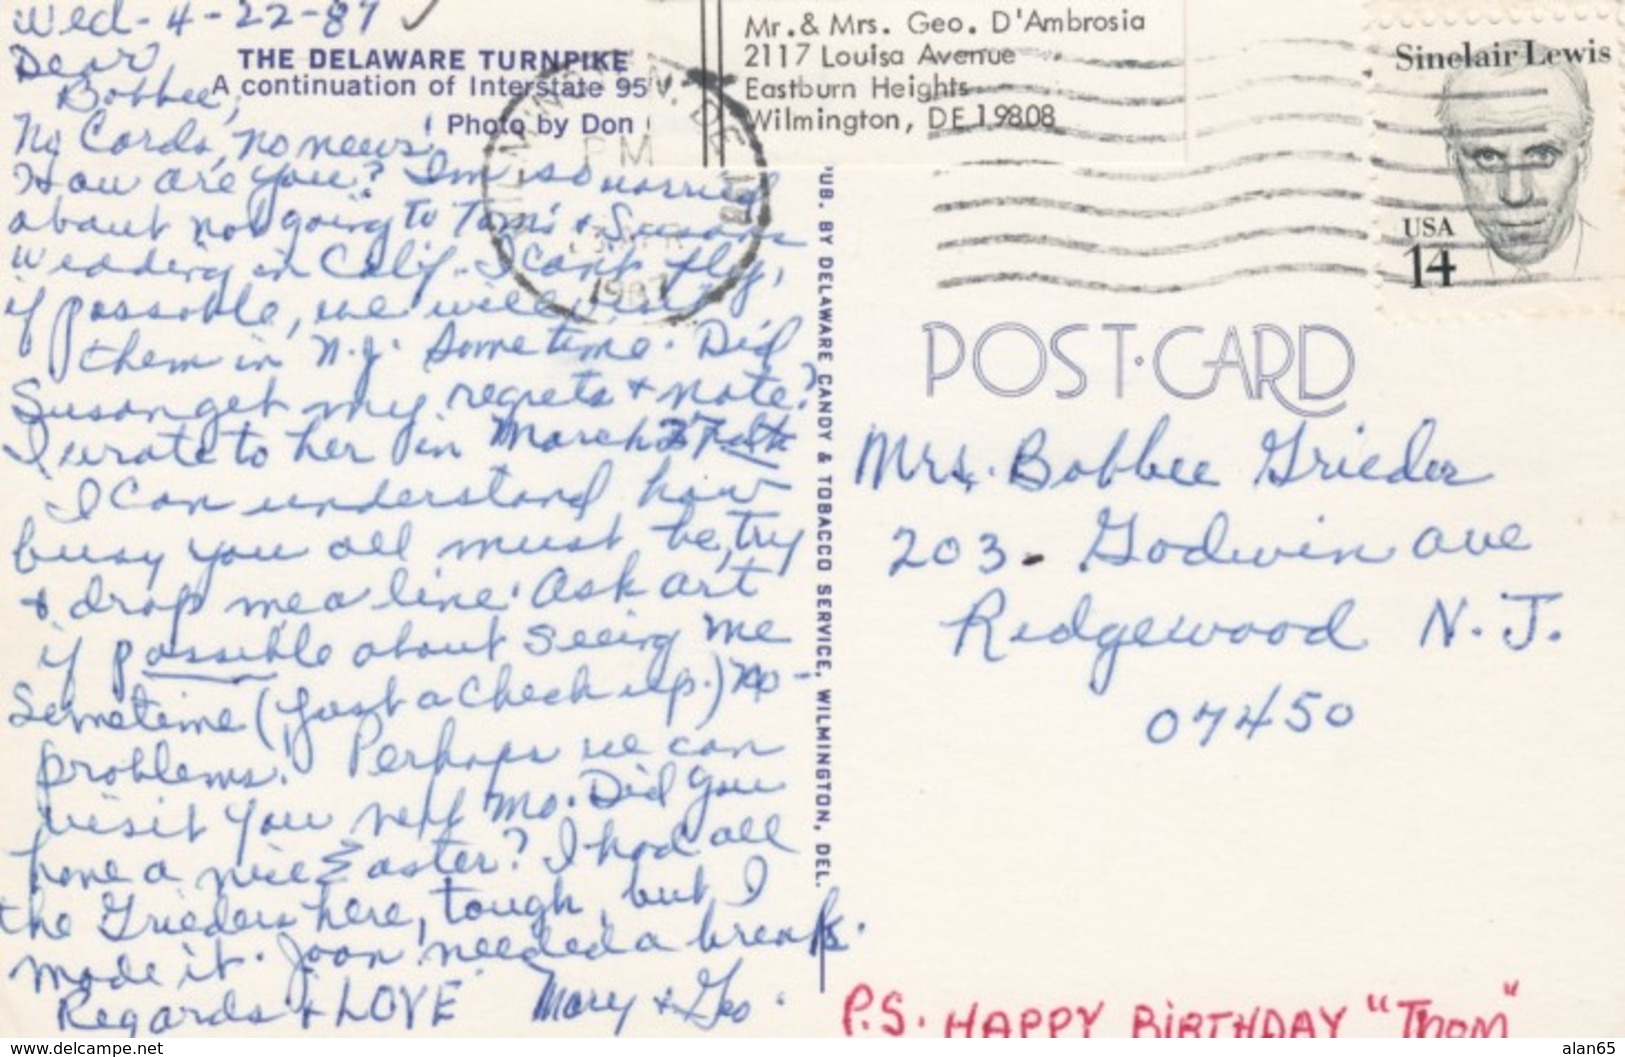 Wed - 4-22-87
Dear
Bobbee,
No Cards, no news!
How are you? I'm so worried
about not going to Tom's & Susans
wedding in Calif. I can't fly,
if possoble, we will visit
them in N.J. Sometime. Did
Susan get my regrets & note?
I wrote to her in March 27th
I can understand how
busy you all must be, try
& drop me a line. Ask art
if possible about seeing me
Sometime (just a check up.) No -
problems. Perhaps we can
visit you next Mo. Did you
have a nice Easter? I had all
the Grieders here, tough, but I
made it. Joan needed a break.
Regards & LOVE Mary & Geo.
THE DELAWARE TURNPIKE
A continuation of Interstate 95
Photo by Don
WILMINGTON, DE 198
PM
APR
1987
PUB. BY DELAWARE CANDY & TOBACCO SERVICE, WILMINGTON, DEL.
Mr. & Mrs. Geo. D'Ambrosia
2117 Louisa Avenue
Eastburn Heights
Wilmington, DE 19808
Sinclair Lewis
USA
14
POST·CARD
Mrs. Bobbee Grieder
203 - Godwin ave
Ridgewood N.J.
07450
P.S. HAPPY BIRTHDAY "Thom"
www.delcampe.net
alan65